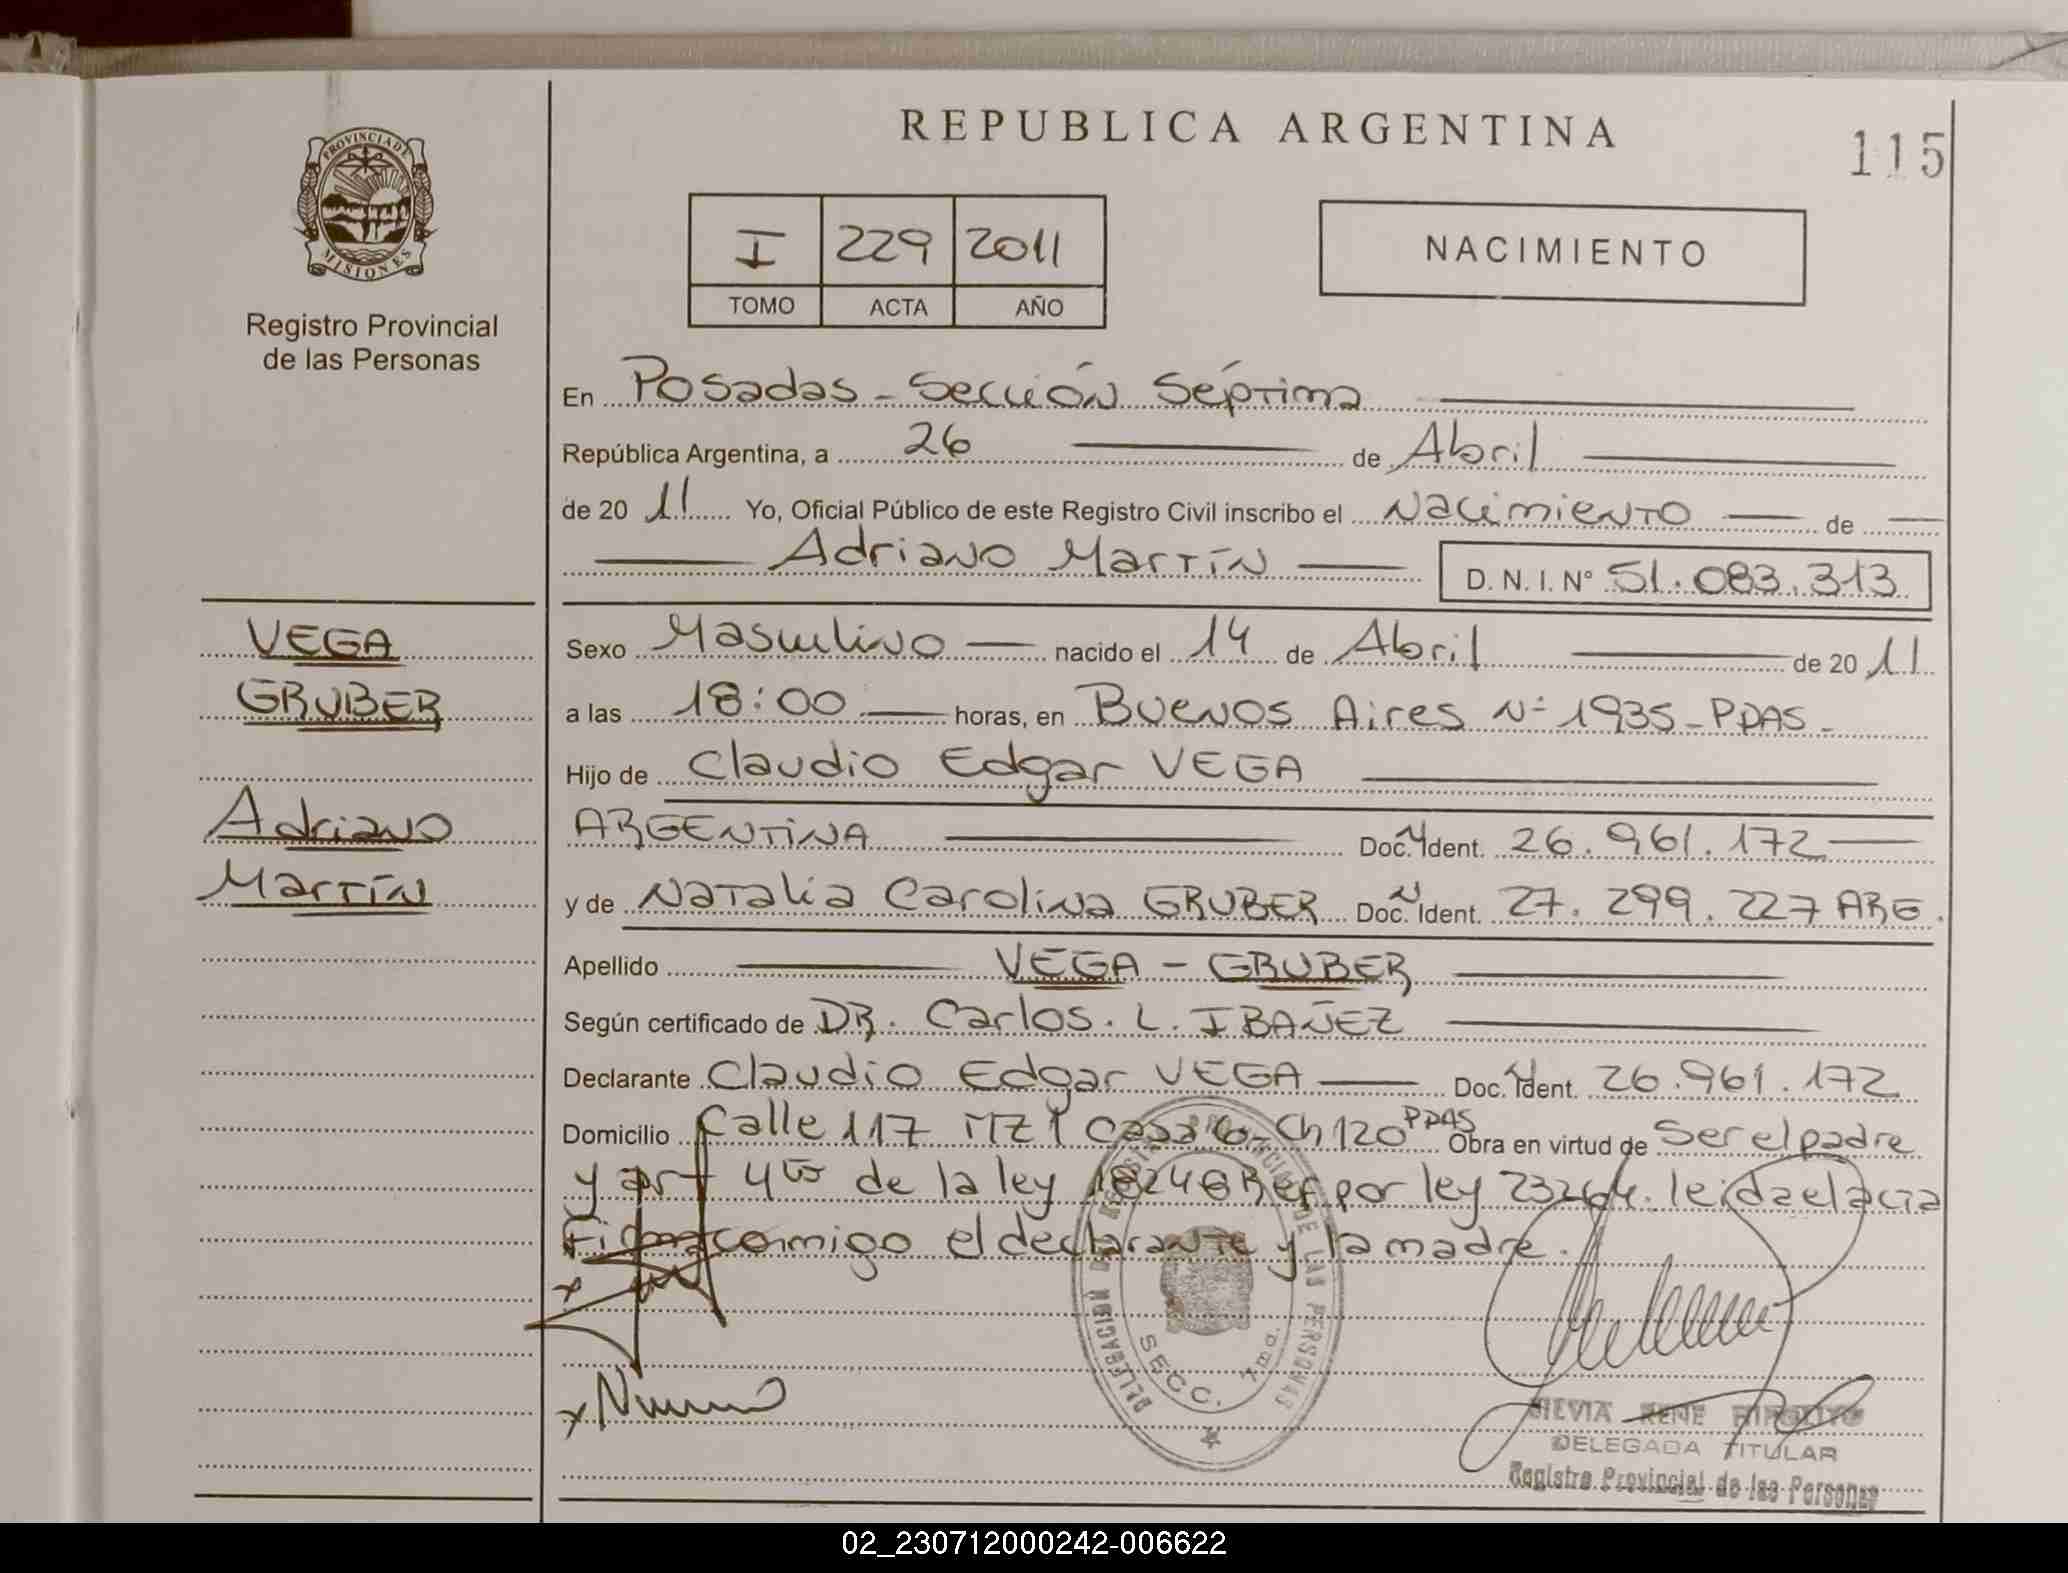 REPUBLICA ARGENTINA
115
PROVINCIA DE MISIONES
Registro Provincial
de las Personas
I 229 2011
TOMO ACTA AÑO
NACIMIENTO
En Posadas - Sección Séptima
República Argentina, a 26 de Abril
de 20 11 Yo, Oficial Público de este Registro Civil inscribo el Nacimiento de
Adriano Martín D. N. I. Nº 51.083.313
VEGA
GRUBER
Adriano
Martín
Sexo Masculino nacido el 14 de Abril de 20 11
a las 18:00 horas, en Buenos Aires Nº 1935 - PDAS -
Hijo de Claudio Edgar VEGA
ARGENTINA Doc. N Ident. 26.961.172
y de Natalia Carolina GRUBER Doc. N Ident. 27.299.227 ARG.
Apellido VEGA - GRUBER
Según certificado de DR. Carlos. L. IBAÑEZ
Declarante Claudio Edgar VEGA Doc. N Ident. 26.961.172
Domicilio Calle 117 MZ 1 Casa 6 - Ch 120 PDAS Obra en virtud de Ser el padre
y art 4to de la ley 18248 Ref por ley 23264. leida el acta
Firma conmigo el declarante y la madre.
DELEGACION REGISTRO PROVINCIAL DE LAS PERSONAS
SECC. 7ma.
SILVIA RENE HIPOLITO
DELEGADA TITULAR
Registro Provincial de las Personas
02_230712000242-006622